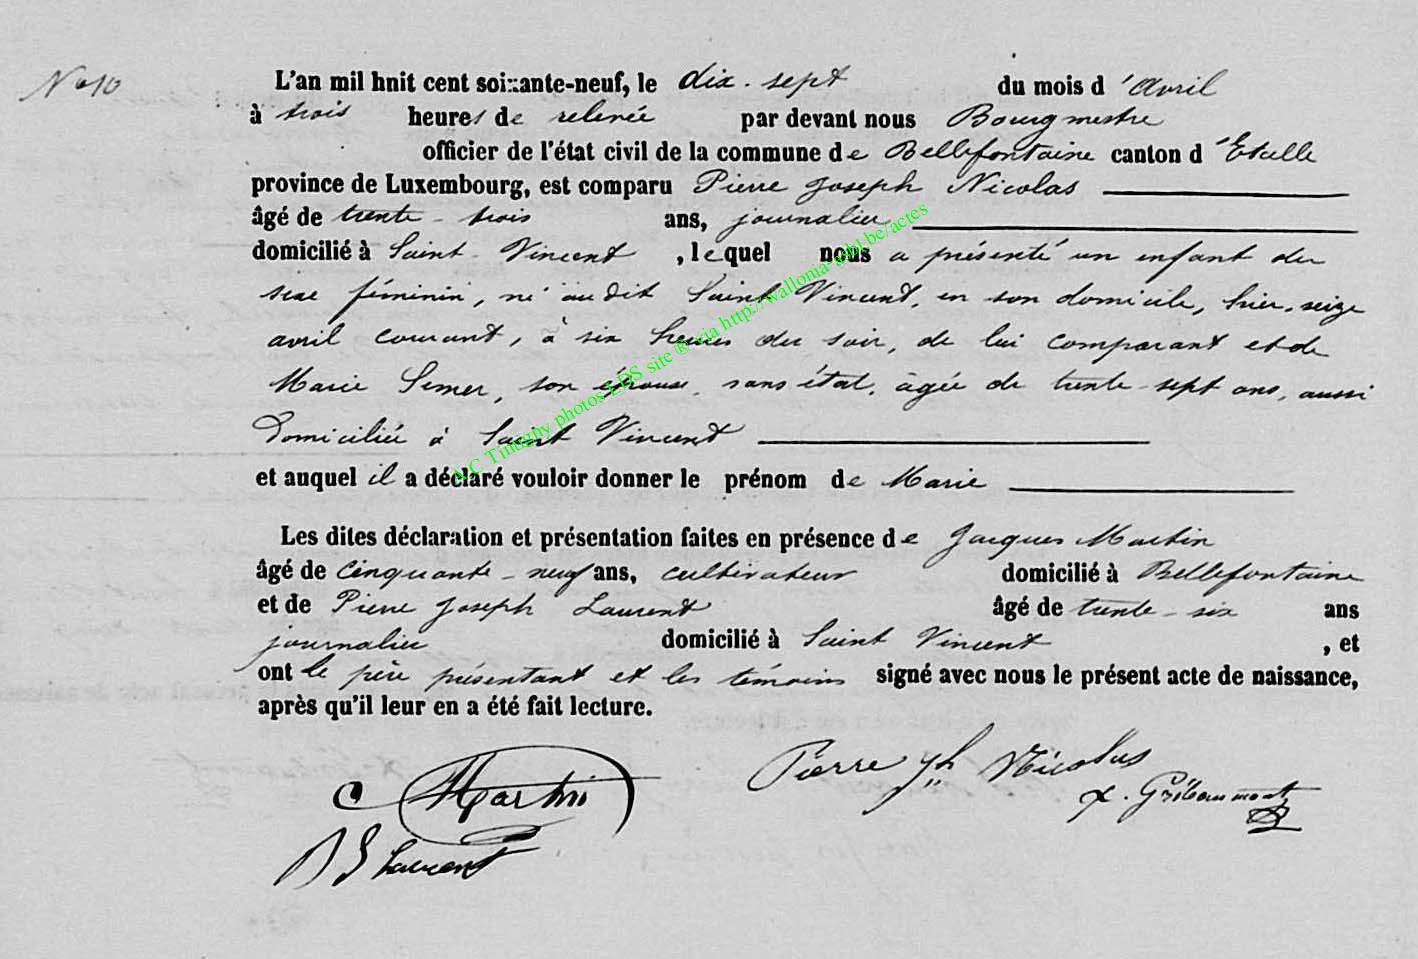 N° 10
L'an mil hnit cent soixante-neuf, le dix-sept du mois d'avril
à trois heures de relevée par devant nous Bourgmestre
officier de l'état civil de la commune de Bellefontaine canton d'Etalle
province de Luxembourg, est comparu Pierre Joseph Nicolas
âgé de trente-trois ans, journalier
domicilié à Saint-Vincent, lequel nous a présenté un enfant du
sexe féminin, né audit Saint Vincent, en son domicile, hier, seize
avril courant, à six heures du soir, de lui comparant et de
Marie Semer, son épouse, sans état, âgée de trente-sept ans, aussi
Domiciliée à Saint Vincent
et auquel il a déclaré vouloir donner le prénom de Marie
Les dites déclaration et présentation faites en présence de Jacques Martin
âgé de cinquante-neuf ans, cultivateur domicilié à Bellefontaine
et de Pierre Joseph Laurent âgé de trente-six ans
journalier domicilié à Saint Vincent, et
ont le père présentant et les témoins signé avec nous le présent acte de naissance,
après qu'il leur en a été fait lecture.
Martin
Pierre Jph Nicolas
x. Gribaumont
Laurent
A.C Tintigny photos LDS site ® via http://wallonia-asbl.be/actes